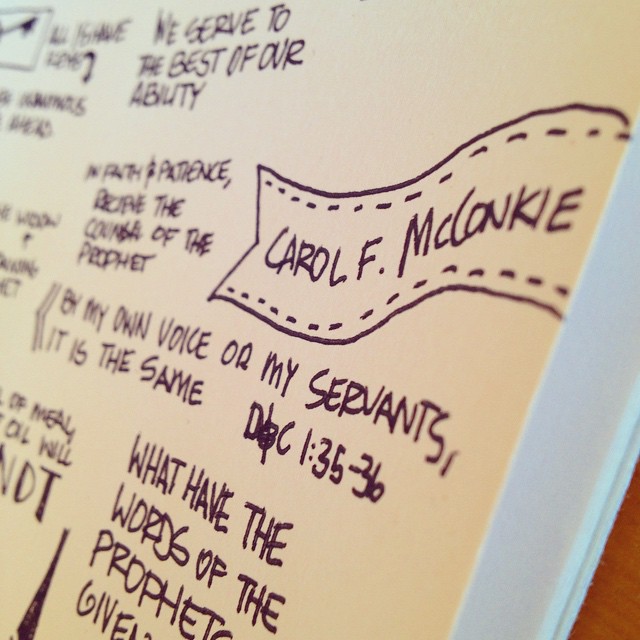 ALL I HAVE
WE SERVE TO
THE BEST OF OUR
ABILITY
IN FAITH & PATIENCE,
RECEIVE THE
COUNSEL OF THE
PROPHET
CAROL F. McCONKIE
WIDOW
BY MY OWN VOICE OR MY SERVANTS,
IT IS THE SAME
D&C 1:35-36
OF MEAL
OIL WILL
NOT
WHAT HAVE THE
WORDS OF THE
PROPHETS
GIVEN